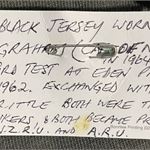 BLACK JERSEY WORN
GRAHAM
IN 1964
3RD TEST AT EDEN P
1962. EXCHANGED WIT
RITTLE BOTH WERE TH
KERS, & BOTH BECAME PR
Z.R.U. AND A.R.U.